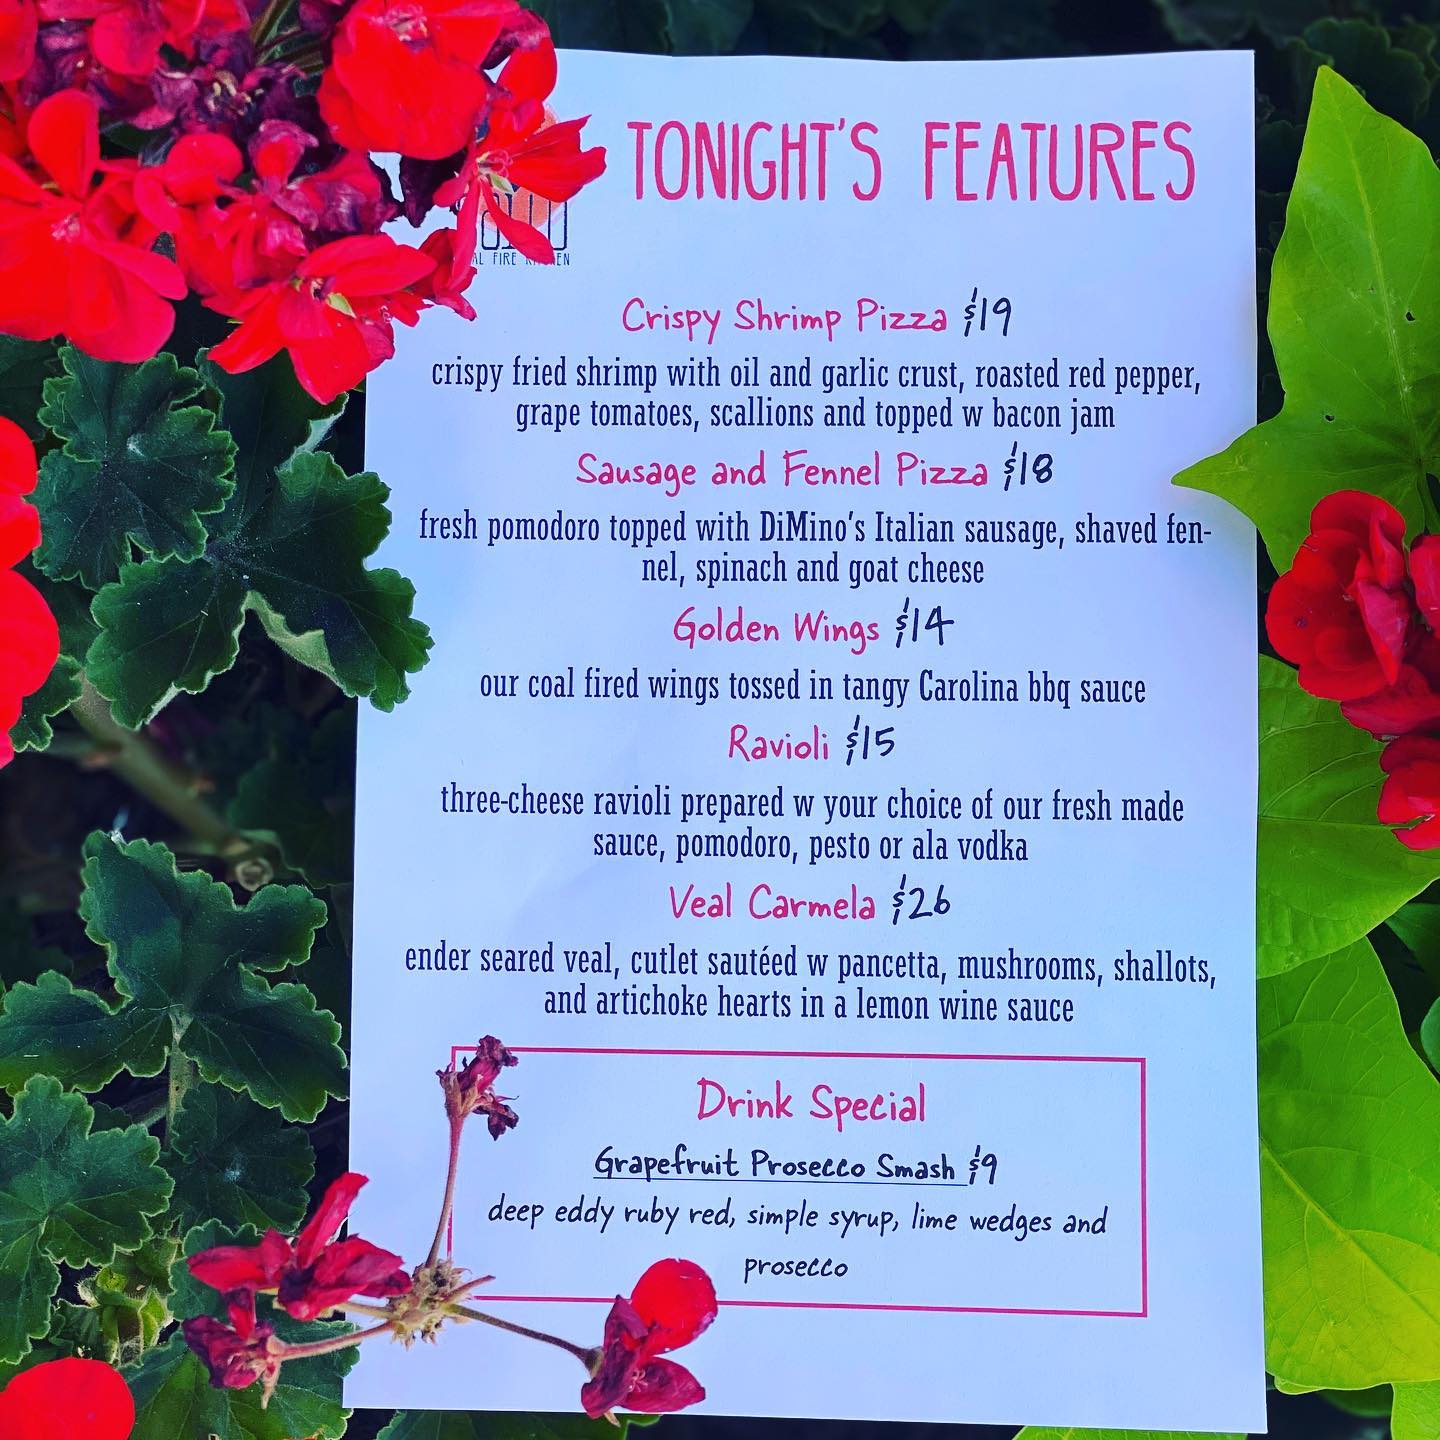 TONIGHT'S FEATURES
FIRE
Crispy Shrimp Pizza $19
crispy fried shrimp with oil and garlic crust, roasted red pepper,
grape tomatoes, scallions and topped w bacon jam
Sausage and Fennel Pizza $18
fresh pomodoro topped with DiMino's Italian sausage, shaved fen-
nel, spinach and goat cheese
Golden Wings $14
our coal fired wings tossed in tangy Carolina bbq sauce
Ravioli $15
three-cheese ravioli prepared w your choice of our fresh made
sauce, pomodoro, pesto or ala vodka
Veal Carmela $26
ender seared veal, cutlet sautéed w pancetta, mushrooms, shallots,
and artichoke hearts in a lemon wine sauce
Drink Special
Grapefruit Prosecco Smash $9
deep eddy ruby red, simple syrup, lime wedges and
prosecco